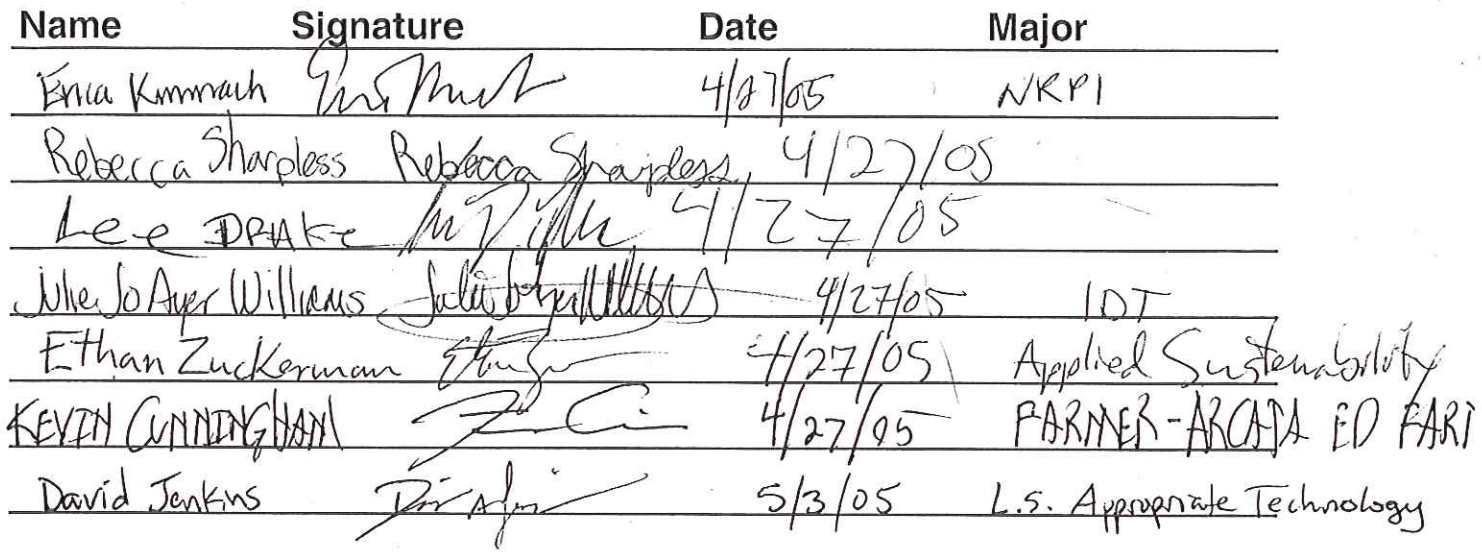 Name Signature Date Major
Erica 4/27/05 NRPI
Rebecca Sharpless Rebecca Sharpless 4/27/05
Lee DRAKE 4/27/05
Julie Jo Ayer Williams Julie Jo Ayer Williams 4/27/05 IDT
Ethan Zuckerman 4/27/05 Applied Sustainability
KEVIN CUNNINGHAM 4/27/05 FARMER-ARCATA ED FARM
David Jenkins 5/3/05 L.S. Appropriate Technology